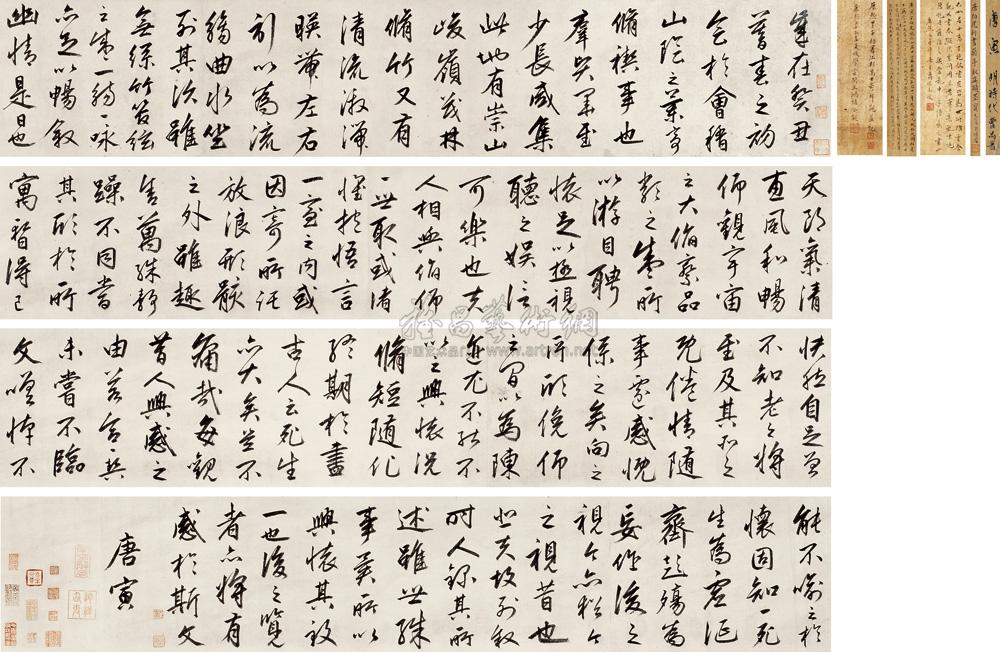 年在癸丑
暮春之初
會於會稽
山陰之蘭亭
脩禊事也
羣賢畢至
少長咸集
此地有崇山
峻嶺茂林
脩竹又有
清流激湍
暎帶左右
引以為流
觴曲水坐
列其次雖
無絲竹管絃
之盛一觴一詠
亦足以暢敘
幽情是日也
天朗氣清
惠風和暢
仰觀宇宙
之大俯察品
類之盛所
以遊目騁
懷足以極視
聽之娛信
可樂也夫
人相與俯仰
一世取或諸
懷抱悟言
一室之內或
因寄所託
放浪形骸
之外雖趣
舍萬殊靜
躁不同當
其欣於所
寓暫得己
快然自足曾
不知老之將
至及其所之
既倦情隨
事遷感慨
係之矣向之
所欣俛仰
之間以為陳
迹尤不能不
以之興懷況
脩短隨化
終期於盡
古人云死生
亦大矣豈不
痛哉每觀
昔人興感之
由若合一契
未嘗不臨
文嗟悼不
能不喻之於
懷固知一死
生為虛誕
齊彭殤為
妄作後之
視今亦猶今
之視昔也
悲夫故列敘
時人錄其所
述雖世殊
事異所以
興懷其致
一也後之覽
者亦將有
感於斯文
唐寅